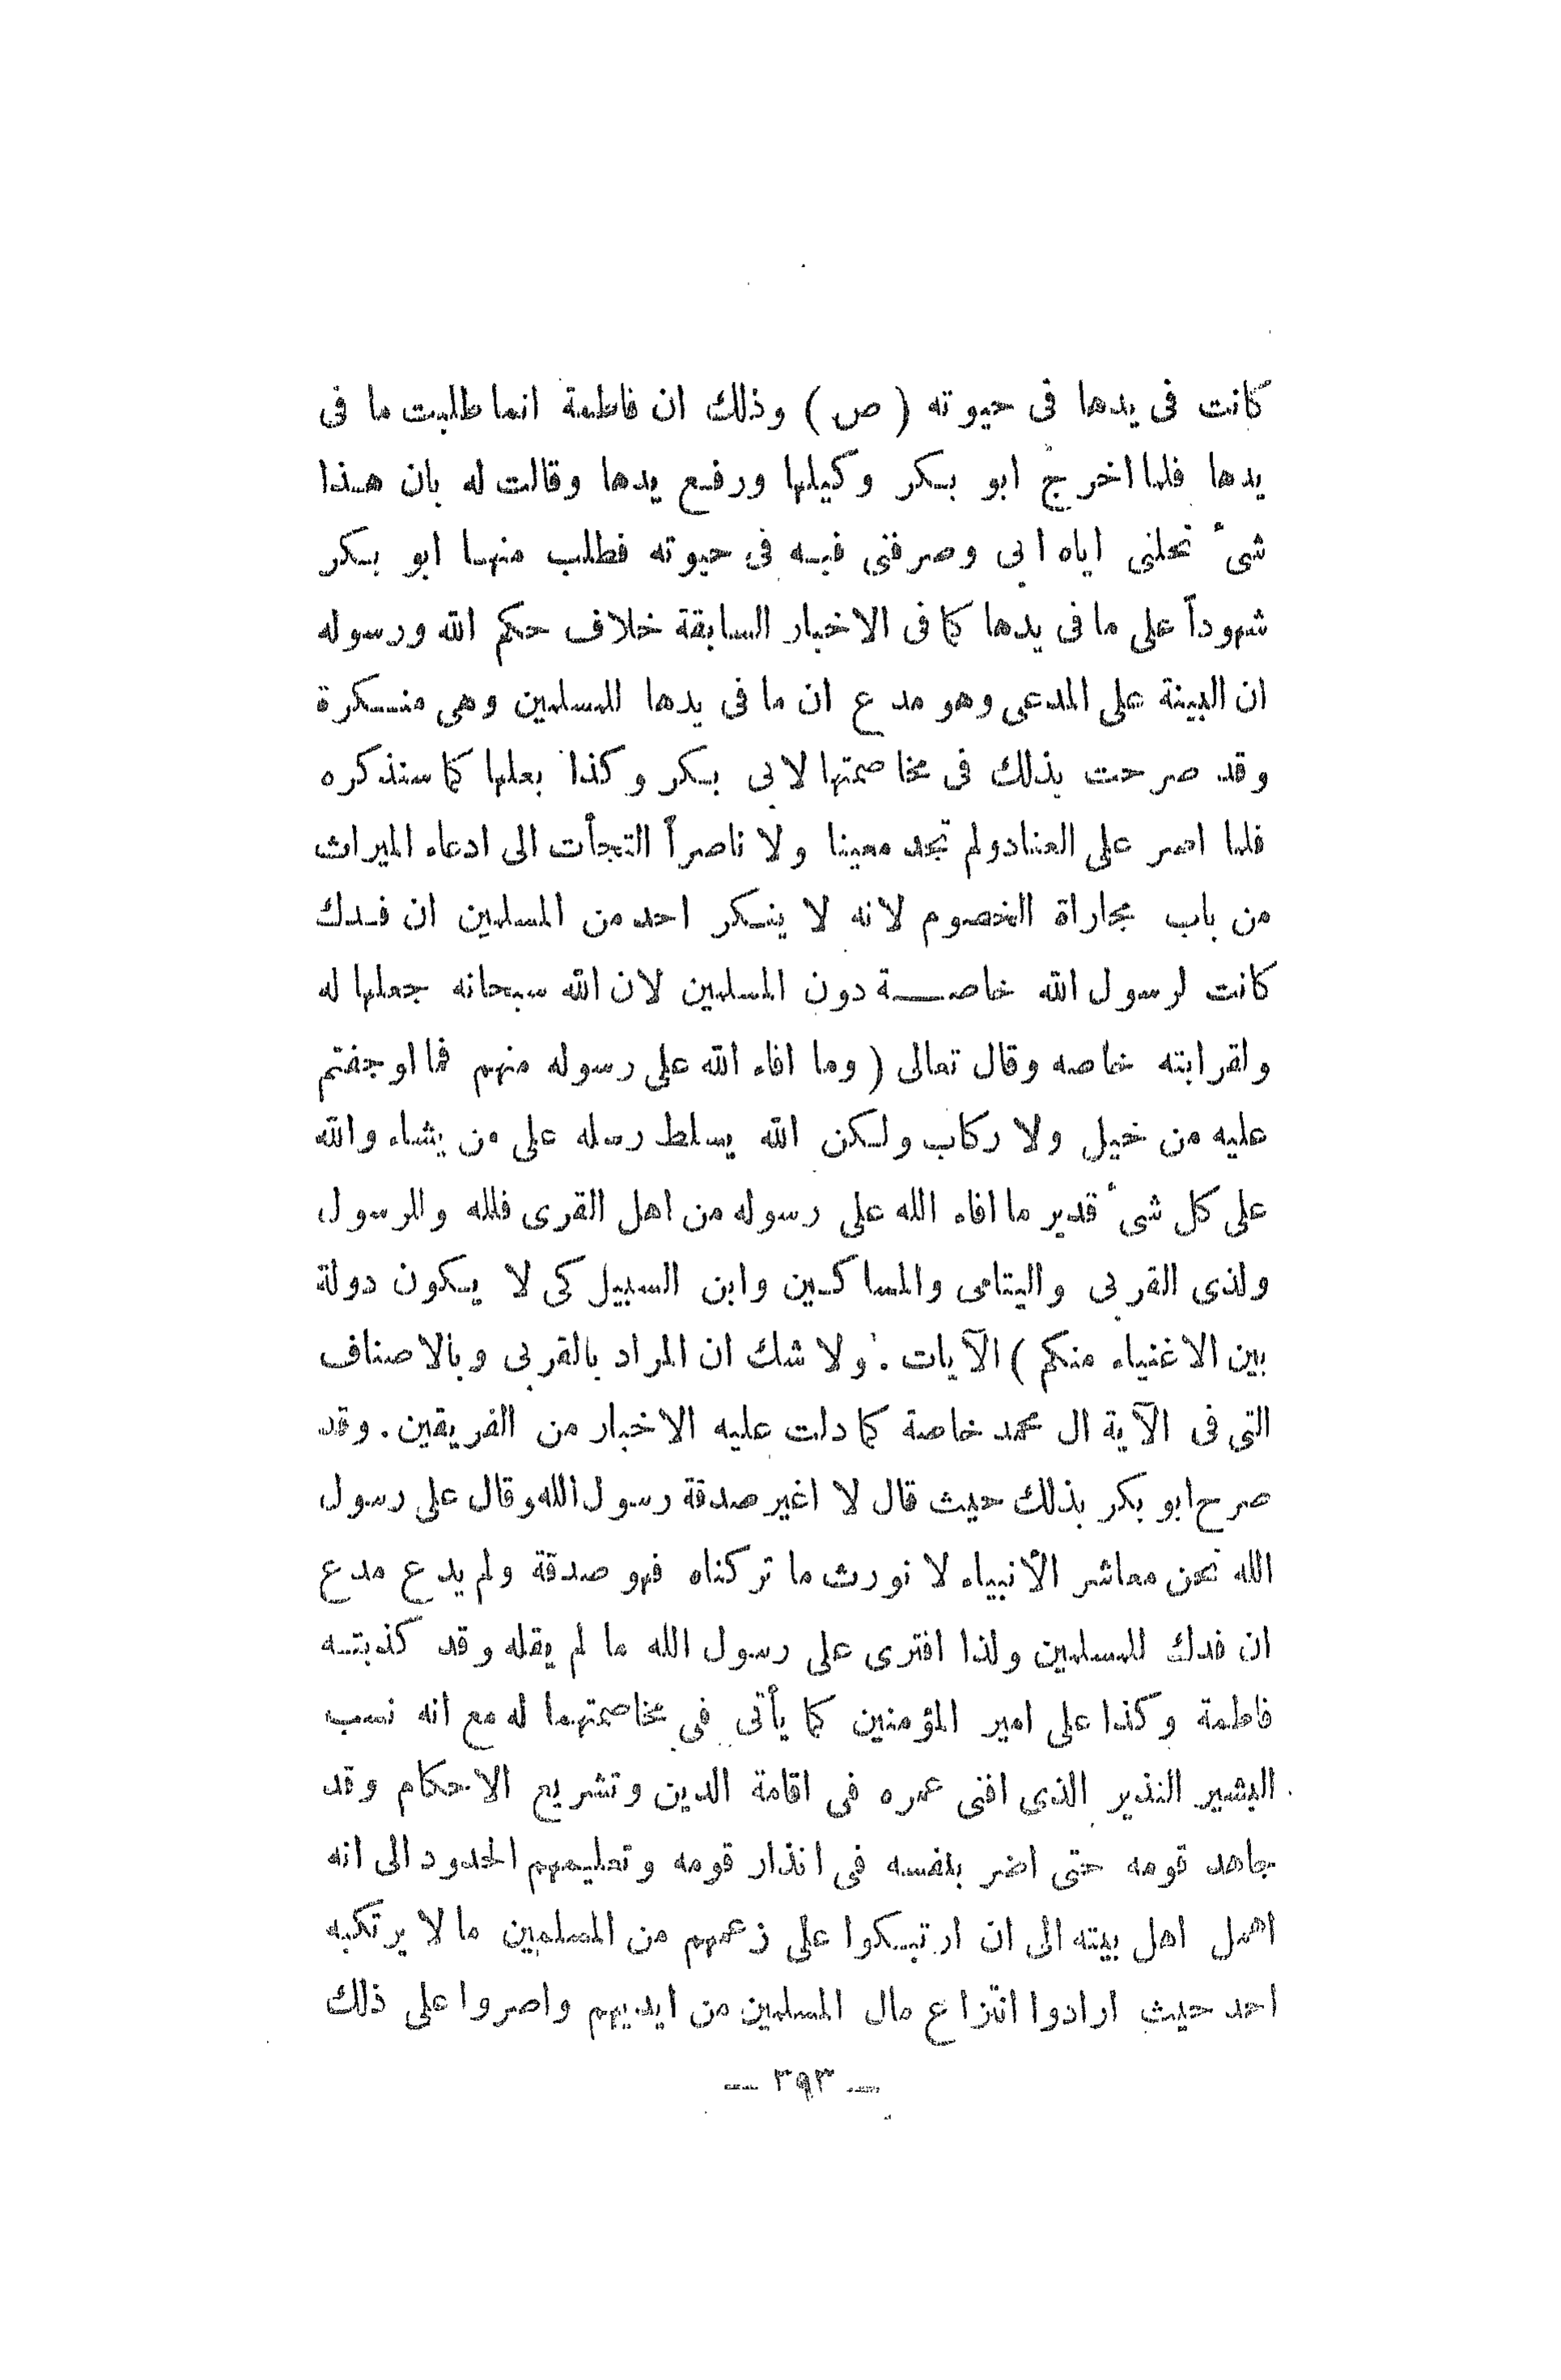 كانت فى يدها فى حيوته ( ص ) وذلك ان فاطمة انما طلبت ما فى
يدها فلما اخرج ابو بكر وكيلها ورفع يدها وقالت له بان هذا
شىء نحلنى اياه ابى وصرفنى فيه فى حيوته فطلب منها ابو بكر
شهوداً على ما فى يدها كما فى الاخبار السابقة خلاف حكم الله ورسوله
ان البينة على المدعى وهو مدع ان ما فى يدها للمسلمين وهى منكرة
وقد صرحت بذلك فى مخاصمتها لابى بكر وكذا بعلها كما سنذكره
فلما اصر على العناد ولم تجد معينا ولا ناصراً التجأت الى ادعاء الميراث
من باب مجاراة الخصوم لانه لا ينكر احد من المسلمين ان فدك
كانت لرسول الله خاصة دون المسلمين لان الله سبحانه جعلها له
ولقرابته خاصه وقال تعالى ( وما افاء الله على رسوله منهم فما اوجفتم
عليه من خيل ولا ركاب ولكن الله يسلط رسله على من يشاء والله
على كل شىء قدير ما افاء الله على رسوله من اهل القرى فلله وللرسول
ولذى القربى واليتامى والمساكين وابن السبيل كى لا يكون دولة
بين الاغنياء منكم ) الآيات . ولا شك ان المراد بالقربى وبالاصناف
التى فى الآية ال محمد خاصة كما دلت عليه الاخبار من الفريقين . وقد
صرح ابو بكر بذلك حيث قال لا اغير صدقة رسول الله وقال على رسول
الله نحن معاشر الأنبياء لا نورث ما تركناه فهو صدقة ولم يدع مدع
ان فدك للمسلمين ولذا افترى على رسول الله ما لم يقله وقد كذبته
فاطمة وكذا على امير المؤمنين كما يأتى فى مخاصمتهما له مع انه نسب
البشير النذير الذى افنى عمره فى اقامة الدين وتشريع الاحكام وقد
جاهد قومه حتى اضر بنفسه فى انذار قومه وتعليمهم الحدود الى انه
اهمل اهل بيته الى ان ارتبكوا على زعمهم من المسلمين ما لا يرتكبه
احد حيث ارادوا انتزاع مال المسلمين من ايديهم واصروا على ذلك
— ٣٩٣ —